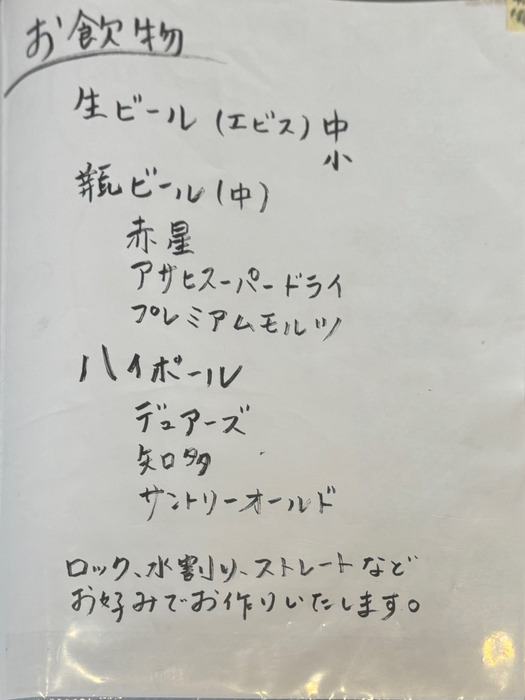 お飲物
生ビール(エビス)中
小
瓶ビール(中)
赤星
アサヒスーパードライ
プレミアムモルツ
ハイボール
デュアーズ
知多
サントリーオールド
ロック、水割り、ストレートなど
お好みでお作りいたします。